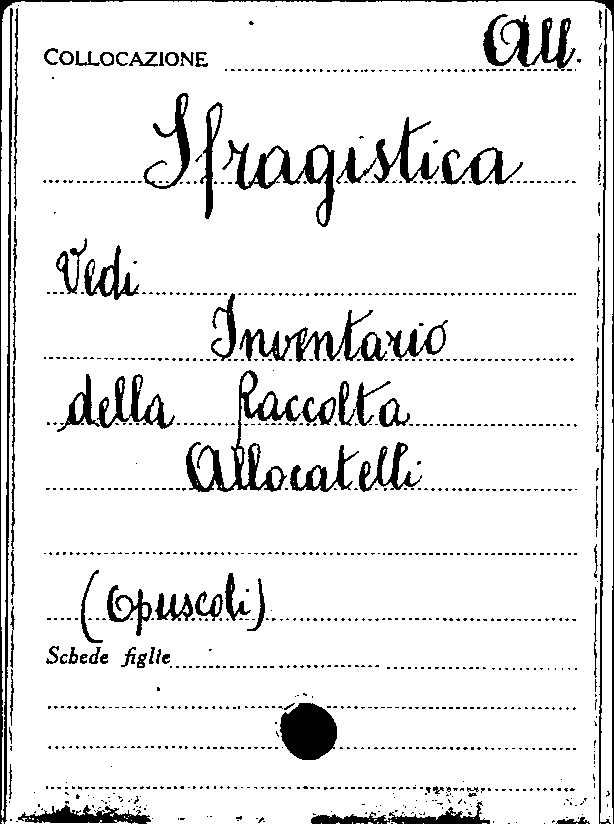 COLLOCAZIONE All.
Sfragistica
Vedi
Inventario
della Raccolta
Allocatelli
(Opuscoli)
Schede figlie